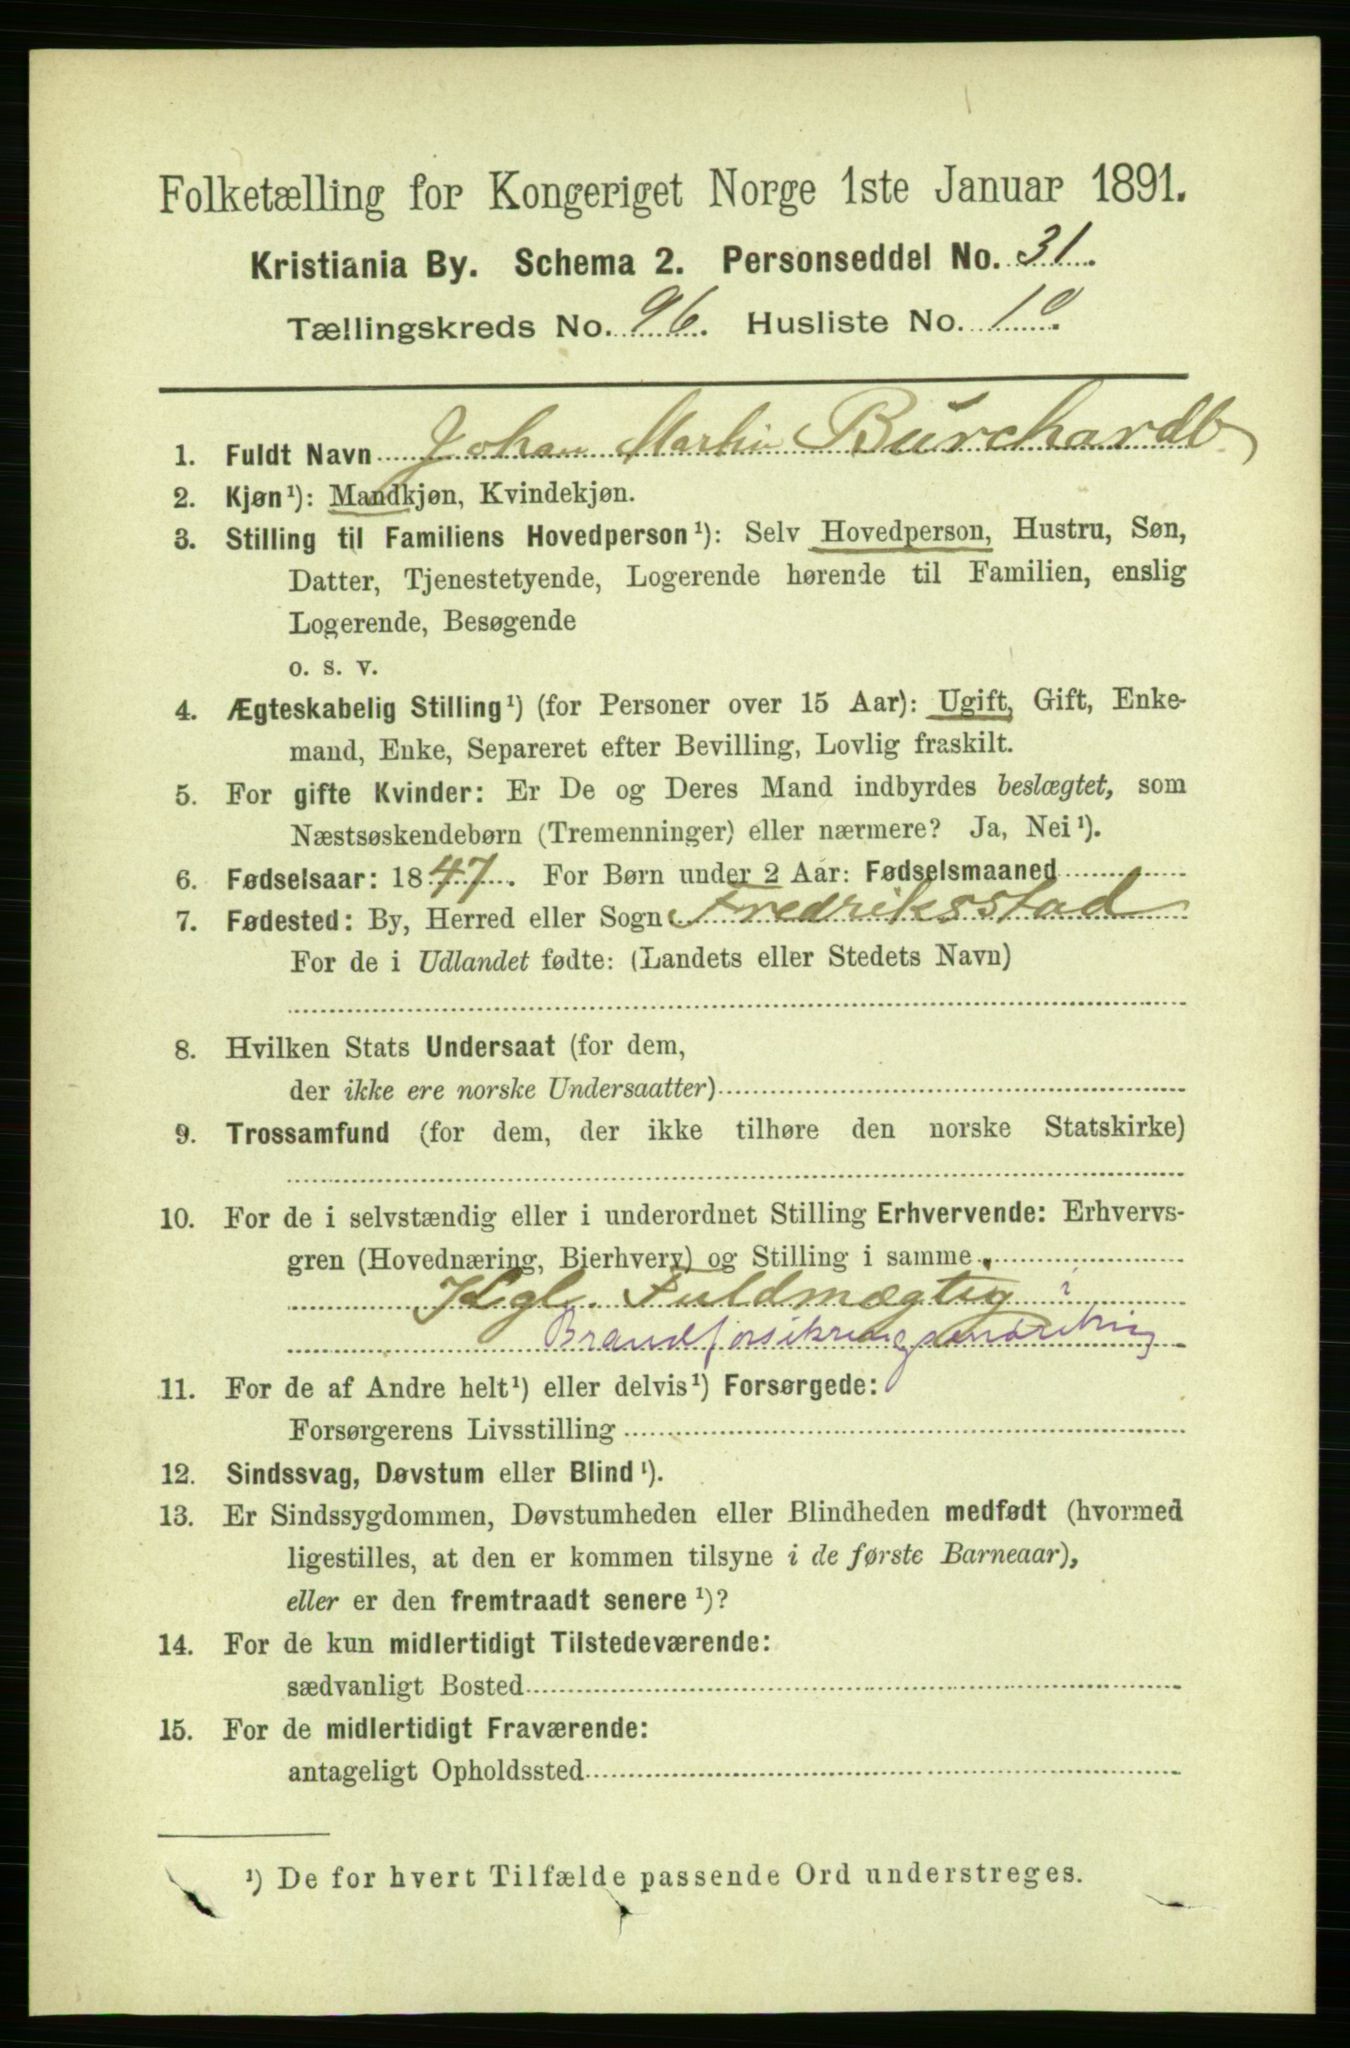 Folketælling for Kongeriget Norge 1ste Januar 1891.
Kristiania By. Schema 2. Personseddel No. 31.
Tællingskreds No. 96. Husliste No. 10.
1. Fuldt Navn Johan Martin Burchardt
2. Kjøn¹): Mandkjøn, Kvindekjøn.
3. Stilling til Familiens Hovedperson¹): Selv Hovedperson, Hustru, Søn,
Datter, Tjenestetyende, Logerende hørende til Familien, enslig
Logerende, Besøgende
o. s. v.
4. Ægteskabelig Stilling¹) (for Personer over 15 Aar): Ugift, Gift, Enke-
mand, Enke, Separeret efter Bevilling, Lovlig fraskilt.
5. For gifte Kvinder: Er De og Deres Mand indbyrdes beslægtet, som
Næstsøskendebørn (Tremenninger) eller nærmere? Ja, Nei¹).
6. Fødselsaar: 1847. For Børn under 2 Aar: Fødselsmaaned
7. Fødested: By, Herred eller Sogn Fredriksstad
For de i Udlandet fødte: (Landets eller Stedets Navn)
8. Hvilken Stats Undersaat (for dem,
der ikke ere norske Undersaatter)
9. Trossamfund (for dem, der ikke tilhøre den norske Statskirke)
10. For de i selvstændig eller i underordnet Stilling Erhvervende: Erhvervs-
gren (Hovednæring, Bierhverv) og Stilling i samme
Kgl. Fuldmægtig i
Brandforsikringsindretning
11. For de af Andre helt¹) eller delvis¹) Forsørgede:
Forsørgerens Livsstilling
12. Sindssvag, Døvstum eller Blind¹).
13. Er Sindssygdommen, Døvstumheden eller Blindheden medfødt (hvormed
ligestilles, at den er kommen tilsyne i de første Barneaar),
eller er den fremtraadt senere¹)?
14. For de kun midlertidigt Tilstedeværende:
sædvanligt Bosted
15. For de midlertidigt Fraværende:
antageligt Opholdssted
¹) De for hvert Tilfælde passende Ord understreges.